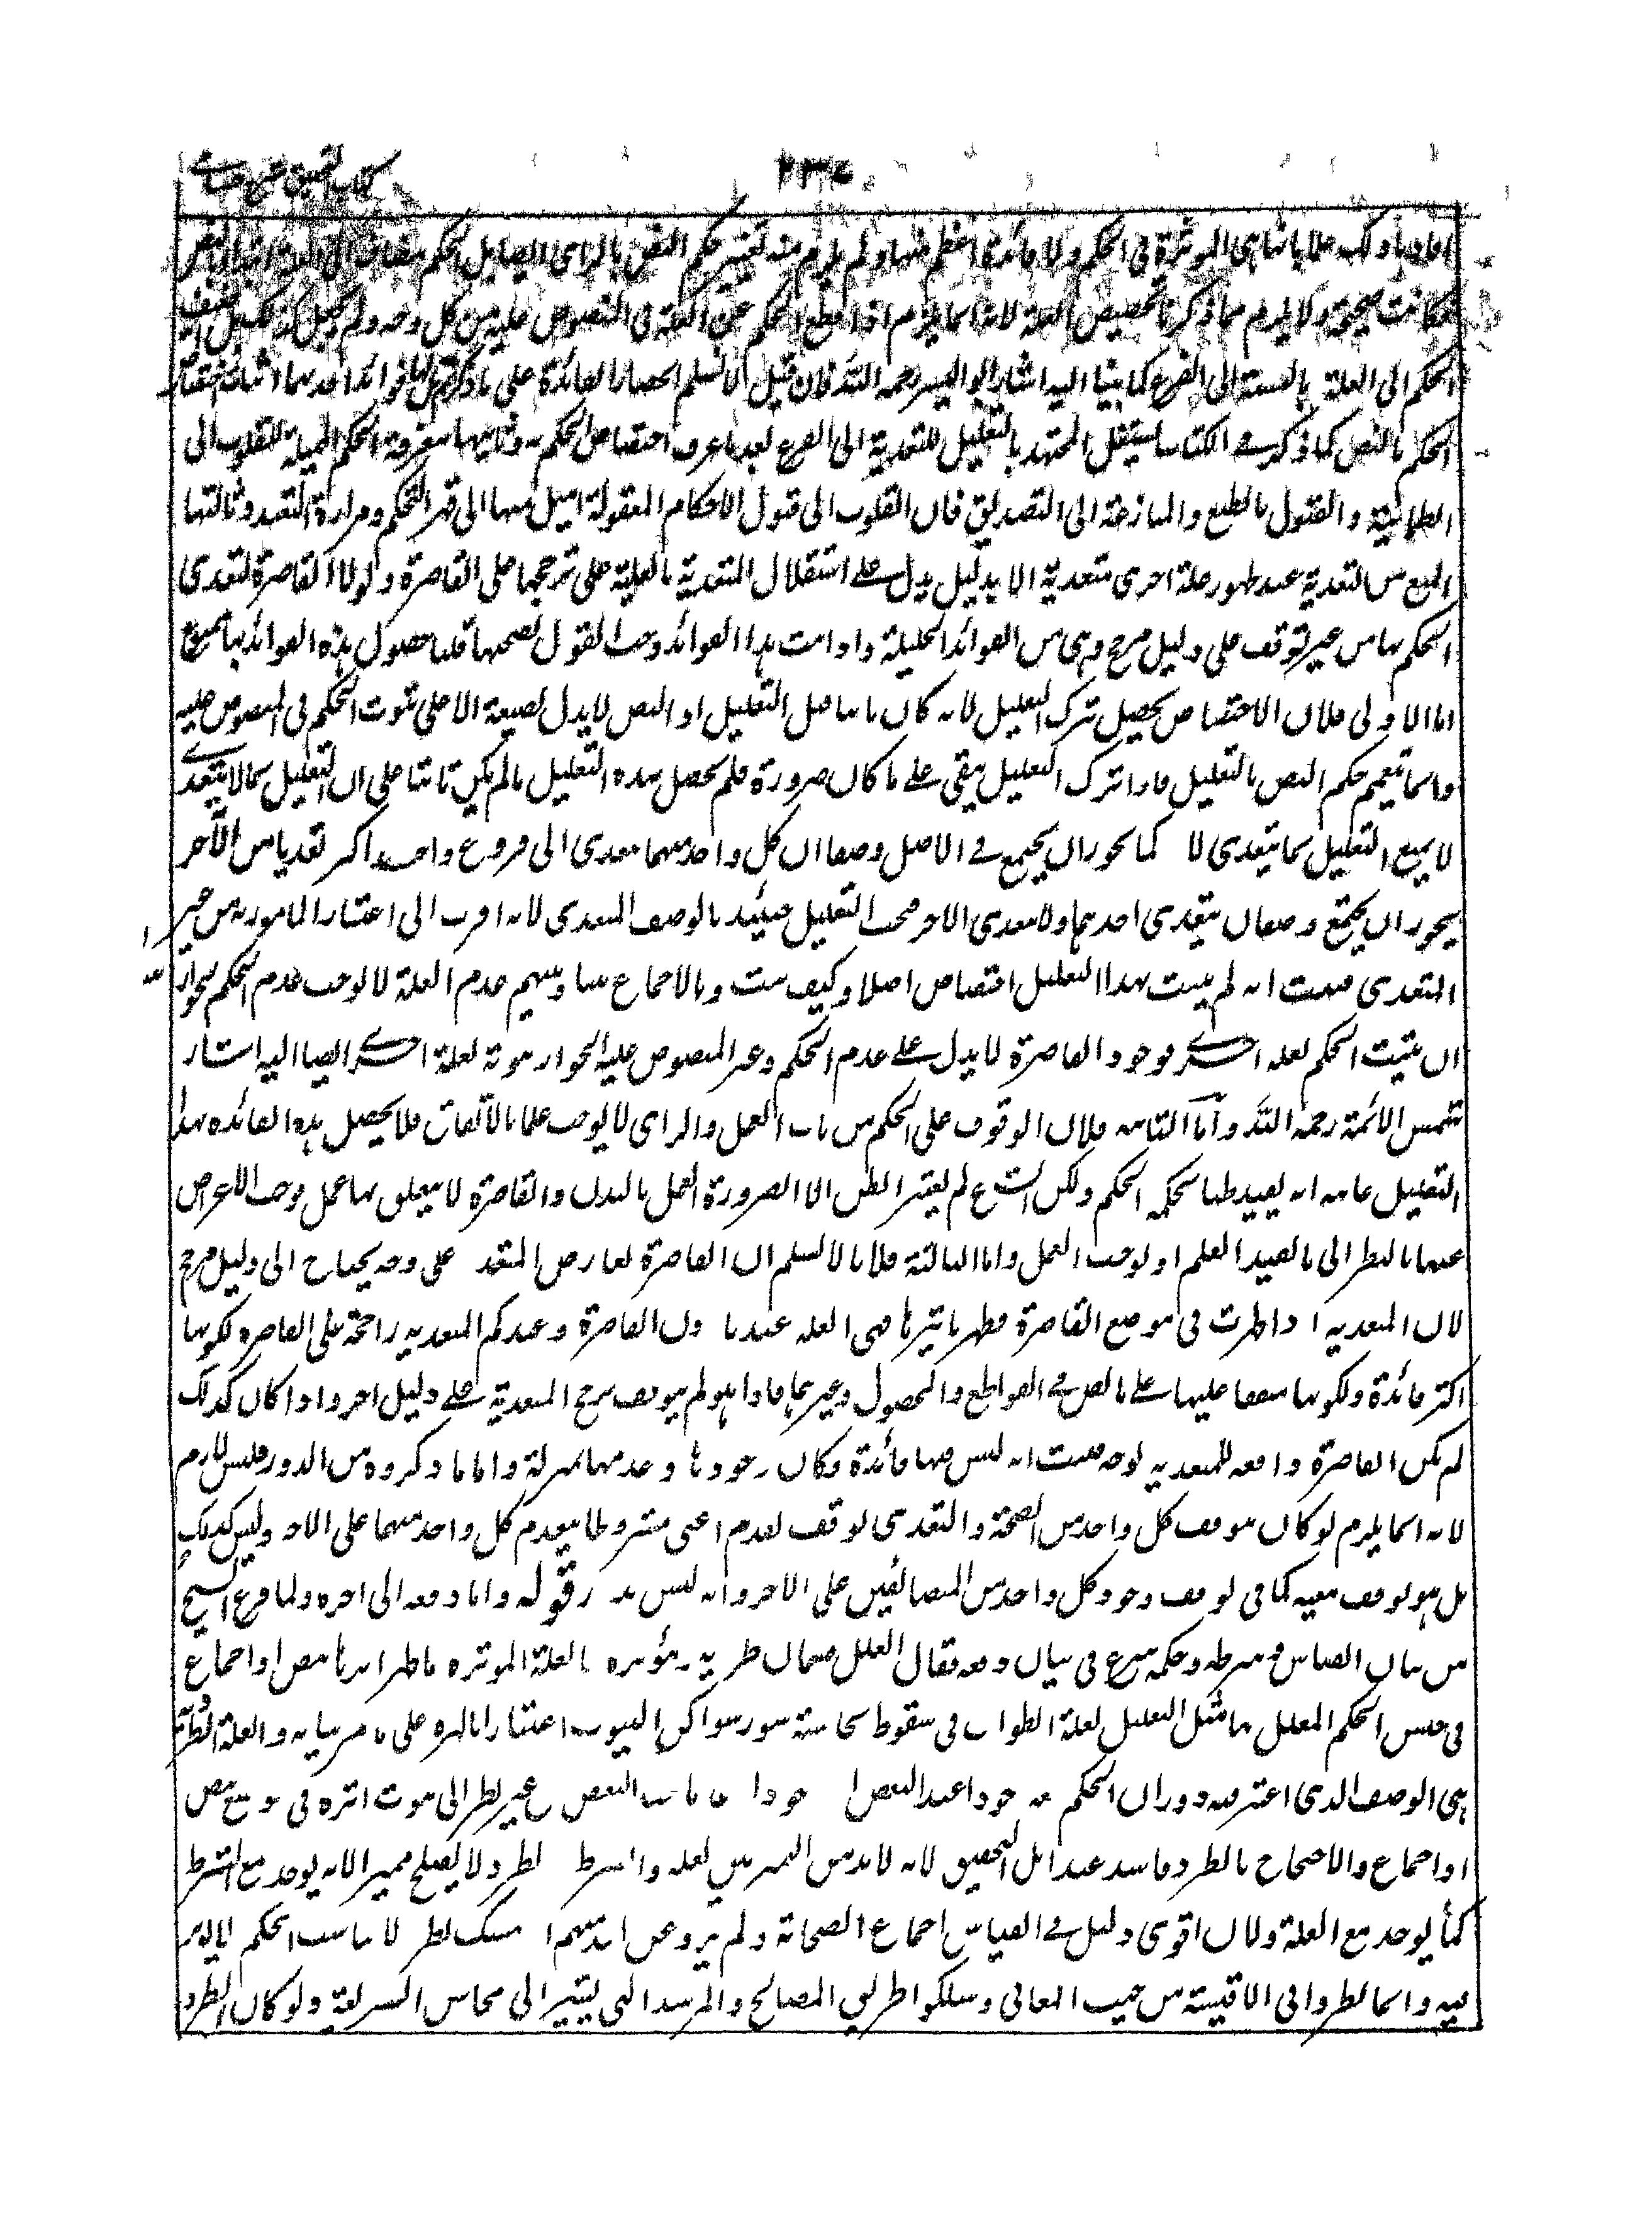 كتاب التحقيق شرح حسامى
۲۳۴
افاد بذلك علما بانها هى الموثرة فى الحكم ولا فائدة اعظم منها ولم يلزم منه تغيير حكم النص بالراى ايضا بل الحكم مضاف الى
فكانت صحيحة ولا يلزم مما ذكرنا تخصيص العلة لانه انما يلزم اذا انقطع الحكم عن العلة فى المنصوص عليه من كل وجه ولم
الحكم الى العلة بالنسبة الى الفرع كما بينا اليه اشار ابو اليسر رحمه الله فان قيل لا نسلم انحصار الفائدة على ما ذكرتم بل لها فوائد احدها اثبات اختصاص
الحكم بالنص كما ذكر فى الكتاب لئلا يشتغل المجتهد بالتعليل للتعدية الى الفرع بعد ما عرف اختصاص الحكم به وثانيها معرفة الحكم المميلة للقلوب الى
الطمانينة والقبول بالطبع والمسارعة الى التصديق فان القلوب الى قبول الاحكام المعقولة اميل منها الى قهر التحكم ومرارة التعبد وثالثها
المنع من التعدية عند ظهور علة اخرى متعدية الا بدليل يدل على استقلال المتعدية بالعلية على ترجحها على القاصرة ولولا القاصرة لتعدى
الحكم بها من غير توقف على دليل مرجح وهى من الفوائد الجليلة واذا ثبت هذا الفوائد وجب القول بصحتها قلنا حصول هذه الفوائد بها ممنوع
اما الاولى فلان الاختصاص يحصل بترك التعليل لانه كان ثابتا قبل التعليل اذ النص لا يدل بصيغته الا على ثبوت الحكم فى المنصوص عليه
وانما تعميم حكم النص بالتعليل فاذا ترك التعليل يبقى على ما كان ضرورة فلم يحصل بهذه التعليل ما لم يكن ثابتا على ان التعليل بما لا يتعدى
لا يمنع التعليل بما يتعدى لا كما يجوز ان يجتمع فى الاصل وصفان كل واحد منهما متعدى الى فروع واحد اكثر تعديا من الآخر
يجوز ان يجتمع وصفان يتعدى احدهما ولا يتعدى الآخر فيجب التعليل حينئذ بالوصف المتعدى لانه اقرب الى اعتبار المامور به من غير
المتعدى فثبت انه لم يثبت بهذا التعليل اختصاص اصلا وكيف يثبت وبالاجماع بيننا وبينهم عدم العلة لا يوجب عدم الحكم لجواز
ان يثبت الحكم لعلة اخرى فوجود القاصرة لا يدل على عدم الحكم فى غير المنصوص عليه لجواز ثبوته لعلة اخرى ايضا اليه اشار
شمس الائمة رحمه الله واما الثانية فلان الوقوف على الحكم من باب العمل والراى لا يوجب علما بالاتفاق فلا يحصل هذه الفائدة بهذا
التعليل غايته انه يفيد ظنا بحكمة الحكم ولكن الشرع لم يعتبر الظن الا لضرورة العمل بالبدن والقاصرة لا يتعلق بها عمل فوجب الاعراض
عنها بالنظر الى ما يفيد العلم او يوجب العمل واما الثالثة فلانا لا نسلم ان القاصرة تعارض المتعد على وجه يحتاج الى دليل مرجح
لان المتعدية اذا ظهرت فى موضع القاصرة فظهر تاثيرها فهى العلة عندنا دون القاصرة وعندكم المتعدية راجحة على القاصرة لكونها
اكثر فائدة ولكونها متفقا عليها على ما نص فى القواطع والمحصول وغيرهما فاذا لم يتوقف ترجح المتعدية على دليل اخر واذا كان كذلك
لم تكن القاصرة دافعة للمتعدية بوجه فثبت انه ليس فيها فائدة فكان وجودها وعدمها بمنزلة واما ما ذكروه من الدور فليس بلازم
لانه انما يلزم لو كان توقف كل واحد من الصحة والتعدى توقف تقدم اعنى مشروطا بتقدم كل واحد منهما على الاخر وليس كذلك
بل هو توقف معية كما فى توقف وجود كل واحد من المتضائفين على الاخر وانه ليس بد وقوله واما دفعه الى اخره ولما فرغ الشيخ
من بيان القياس وشرطه وحكمه شرع فى بيان دفعه فقال العلل قسمان طردية ومؤثرة العلة الموثرة ما ظهر اثرها بنص او اجماع
فى جنس الحكم المعلل بها مثل التعليل لعلة الطواف فى سقوط نجاسة سور سواكن البيوت اعتبارا بالهرة على ما مر بيانه والعلة الطردية
هى الوصف الذى اعتبر فيه دوران الحكم معه وجودا عند البعض وجودا وعدما عند البعض من غير نظر الى ثبوت اثره فى موضع بنص
او اجماع والاحتجاج بالطرد فاسد عند اهل التحقيق لانه لا بد من التمييز بين العلة والشرط والطرد لا يصلح مميزا لانه يوجد مع الشرط
كما يوجد مع العلة ولان اقوى دليل فى القياس اجماع الصحابة ولم يرو عن احد منهم التمسك بطرد لا يناسب الحكم
فيه وانما نظروا فى الاقيسة من حيث المعانى وسلكوا طريق المصالح والمراشد التى تشير الى محاسن الشريعة ولو كان الطرد